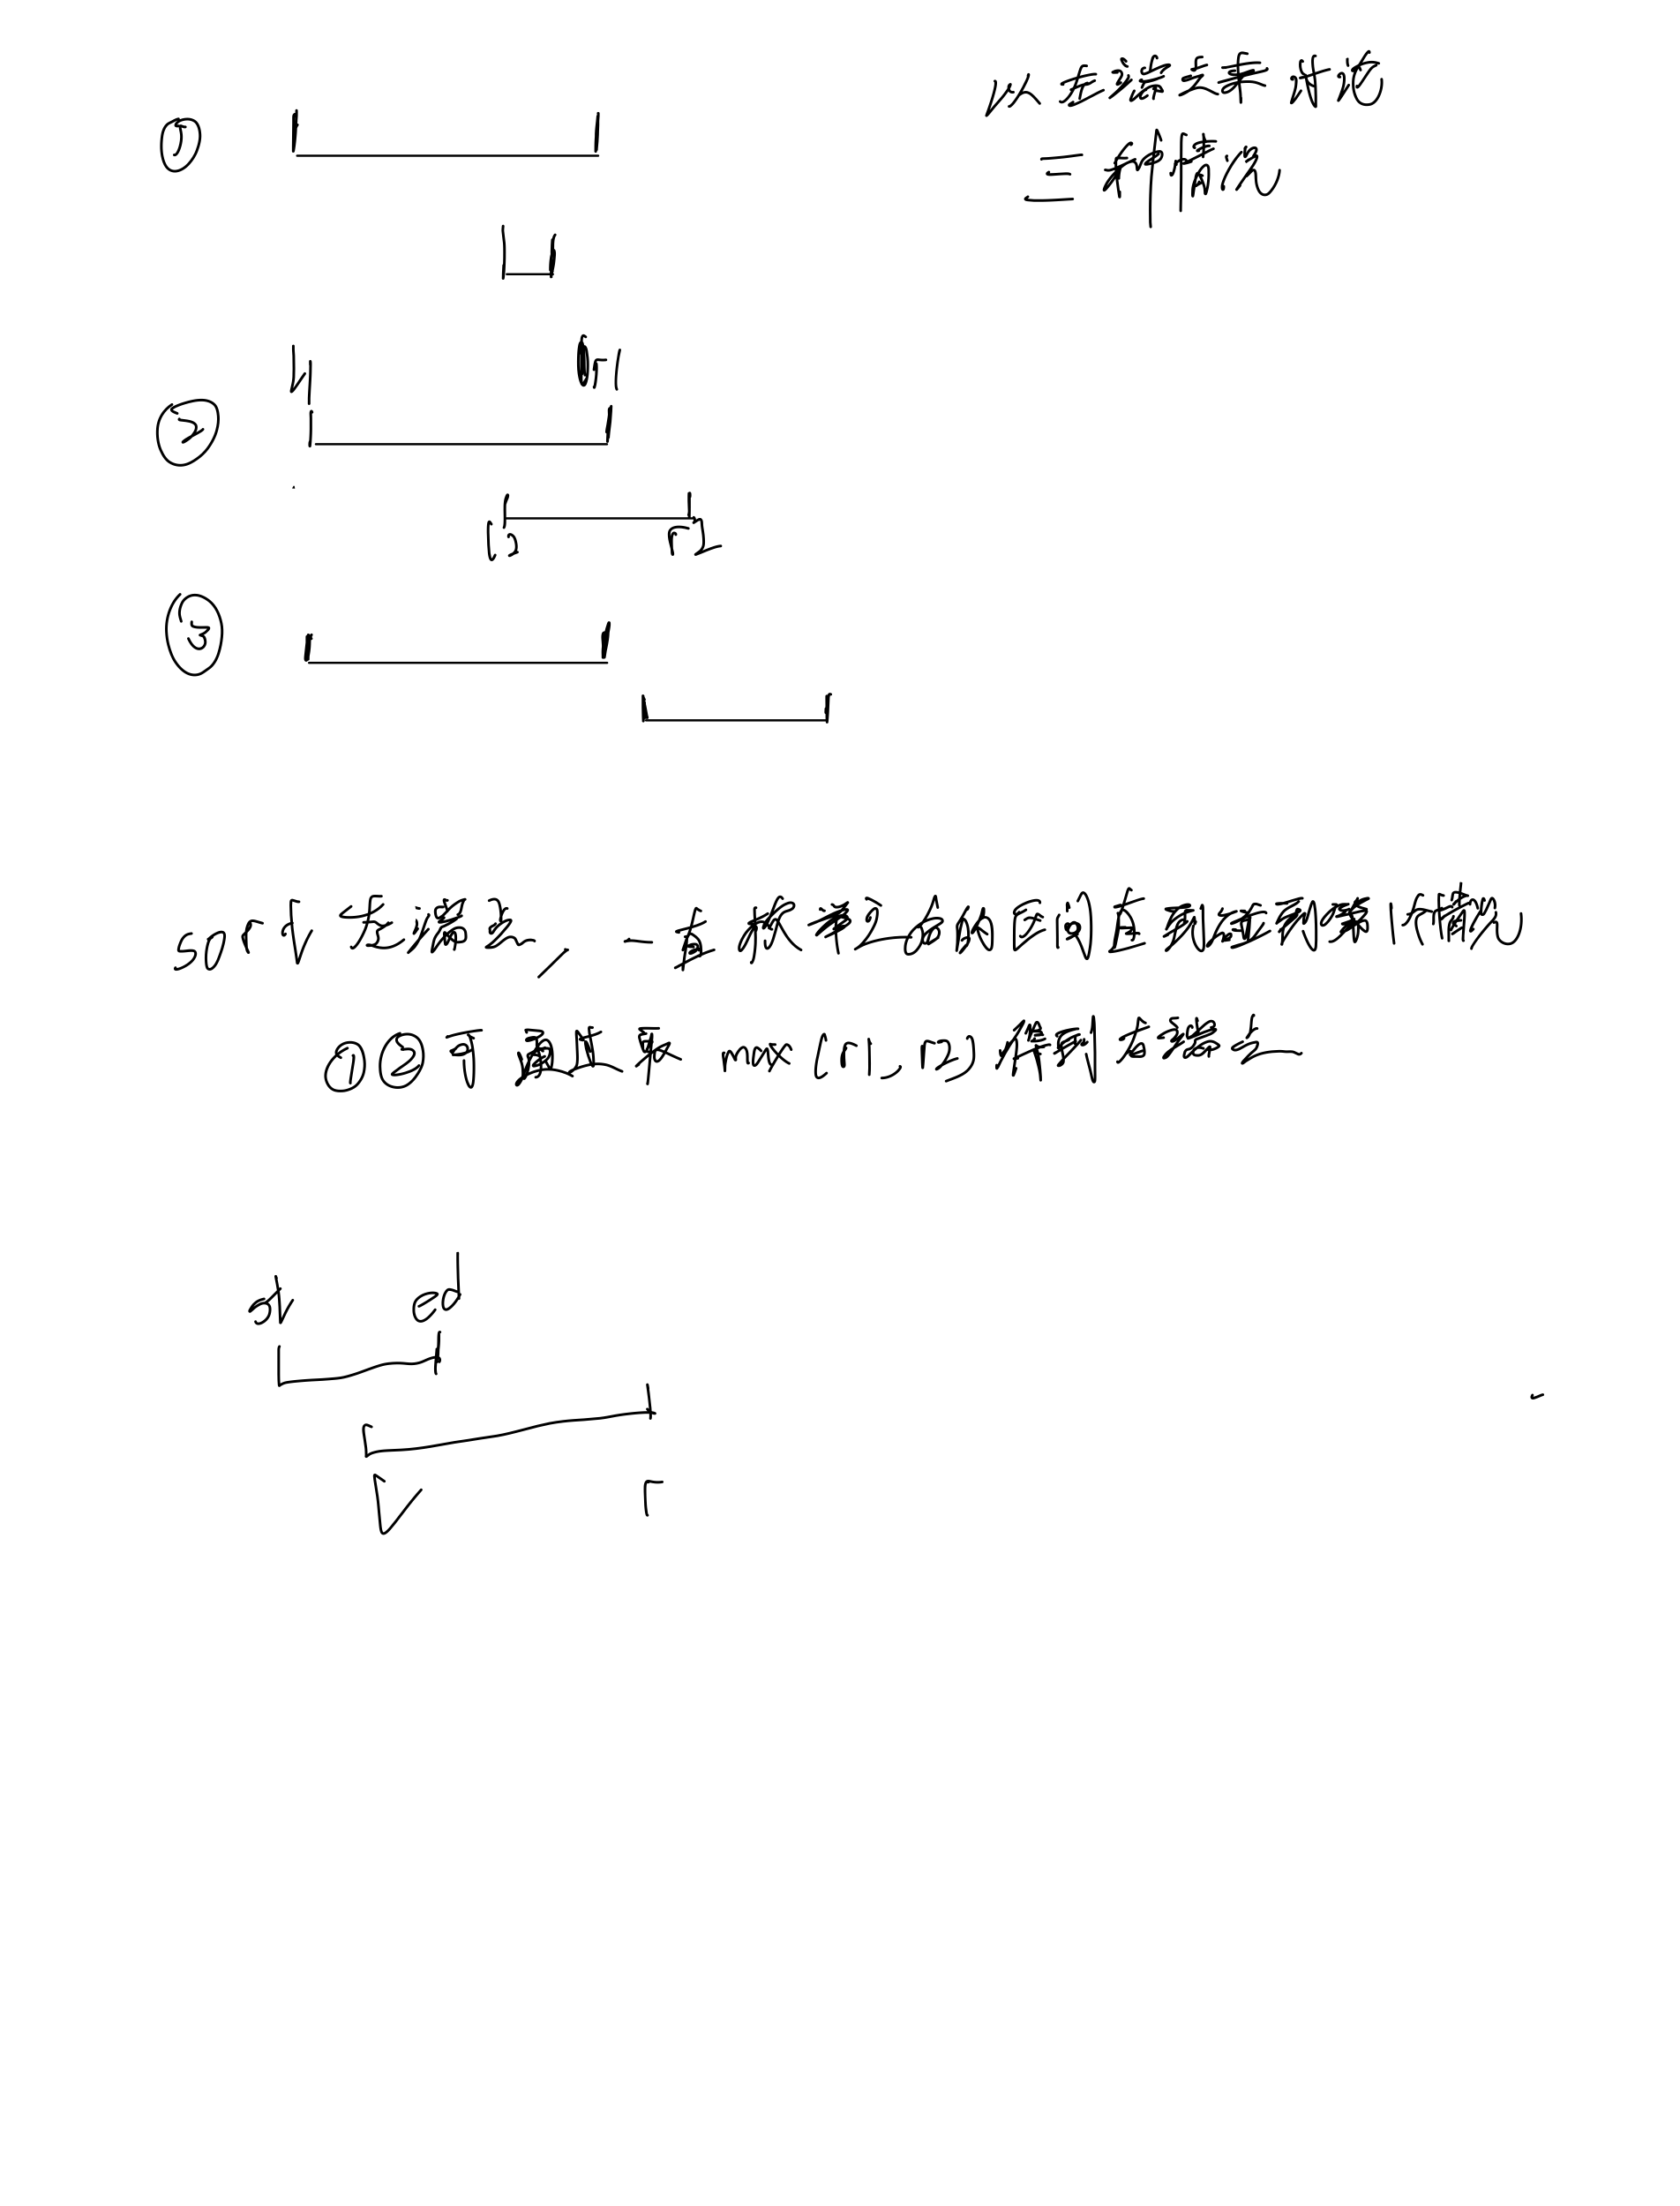 以左端点来讨论
三种情况
①
l1 r1
②
l2 r2
③
sort 左端点, 一直枚举之后的区间直到碰到第1个情况
①②可通过取 max(r1, r2) 得到右端点
st ed
l r